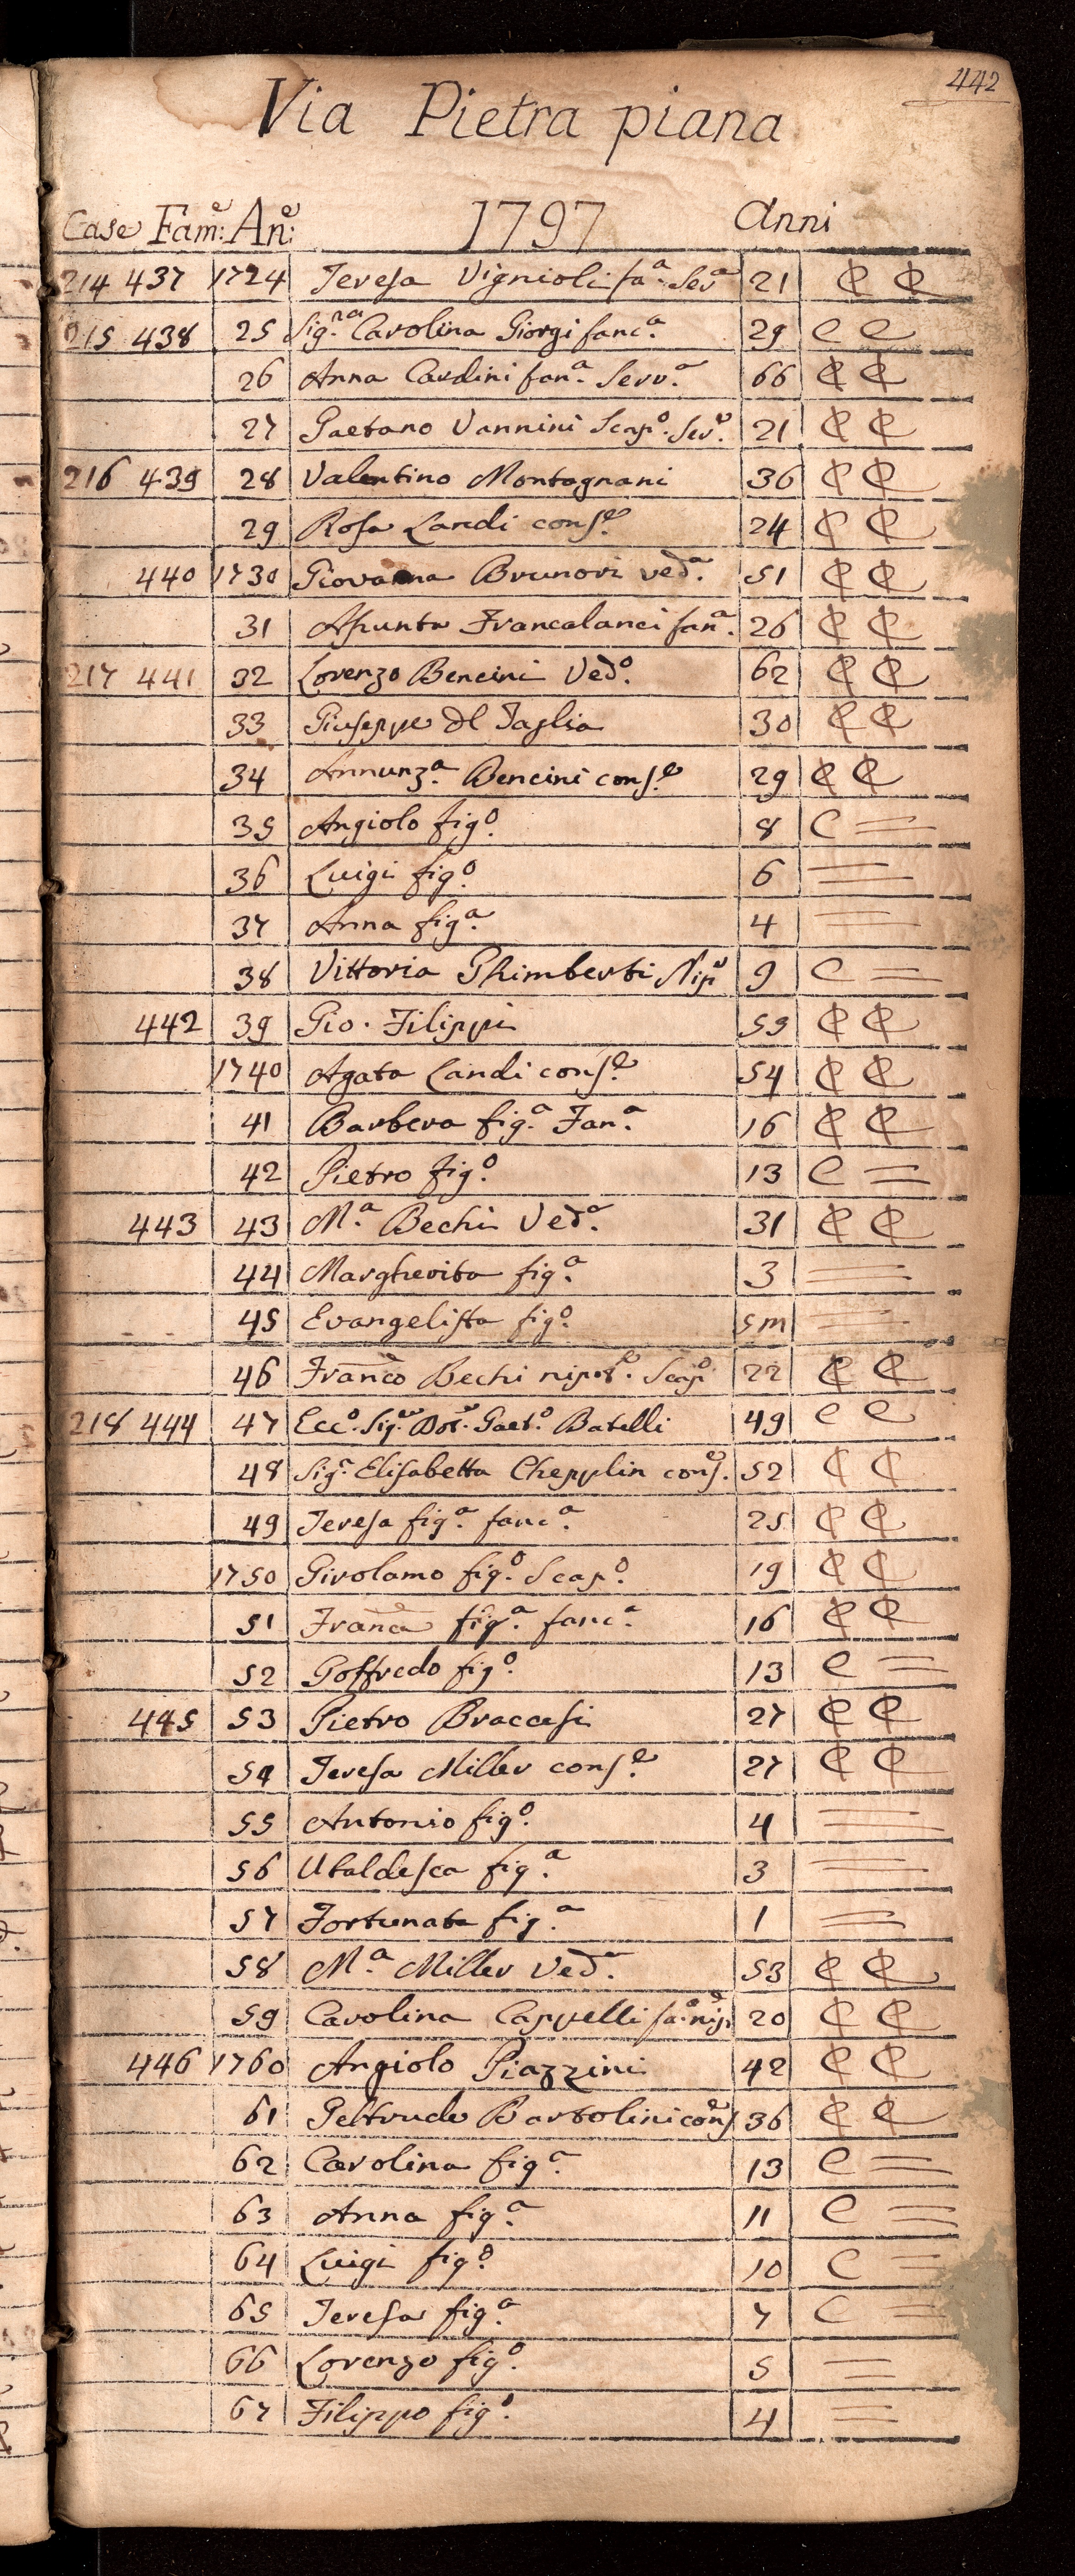 442
Via Pietra piana
Case Fam.e An.e 1797 Anni
214 437 1724 Teresa Vignioli fa.a Ser.a 21 C C
215 438 25 Sig.ra Carolina Giorgi fanc.a 29 C C
26 Anna Cardini fan.a Serv.a 66 C C
27 Gaetano Vannini Scap.o Ser.e 21 C C
216 439 28 Valentino Montagnani 36 C C
29 Rosa Landi cons.e 24 C C
440 1730 Giovanna Brunori ved.a 51 C C
31 Assunta Francalanci fan.a 26 C C
217 441 32 Lorenzo Bencini Ved.o 62 C C
33 Giuseppe del Taglia 30 C C
34 Annunz.a Bencini cons.e 29 C C
35 Angiolo fig.o 8 C =
36 Luigi fig.o 6 =
37 Anna fig.a 4 =
38 Vittoria Ghimberti Nip.e 9 C =
442 39 Gio. Filippi 59 C C
1740 Agata Landi cons.e 54 C C
41 Barbera fig.a Fan.a 16 C C
42 Pietro fig.o 13 C =
443 43 M.a Bechi Ved.a 31 C C
44 Margherita fig.a 3 =
45 Evangelista fig.o 5m =
46 Franco Bechi nipot.e Scap.o 22 C C
218 444 47 Ecc.o Sig.re Dot.re Gaet.o Batelli 49 C C
48 Sig.a Elisabetta Chepplin cons.e 52 C C
49 Teresa fig.a fanc.a 25 C C
1750 Girolamo fig.o Scap.o 19 C C
51 Franca fig.a fanc.a 16 C C
52 Goffredo fig.o 13 C =
445 53 Pietro Braccesi 27 C C
54 Teresa Miller cons.e 27 C C
55 Antonio fig.o 4 =
56 Ubaldesca fig.a 3 =
57 Fortunata fig.a 1 =
58 M.a Miller Ved.a 53 C C
59 Carolina Cappelli fa.a nip.e 20 C C
446 1760 Angiolo Piazzini 42 C C
61 Geltrude Bartolini cons.e 36 C C
62 Carolina fig.a 13 C =
63 Anna fig.a 11 C =
64 Luigi fig.o 10 C =
65 Teresa fig.a 7 C =
66 Lorenzo fig.o 5 =
67 Filippo fig.o 4 =